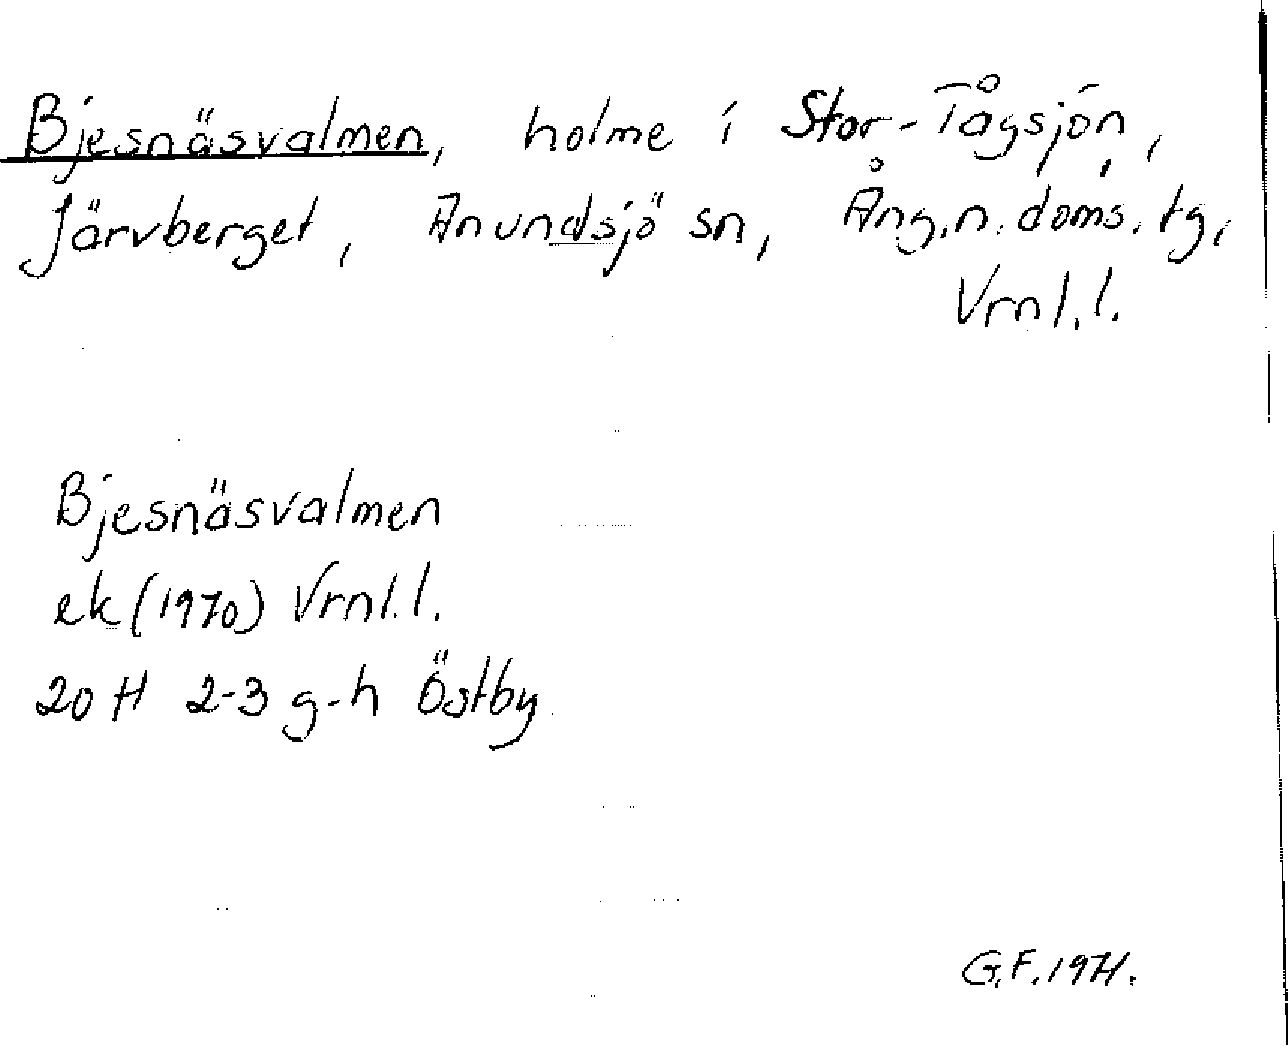 Bjesnäsvalmen, holme i Stor-Tågsjön,
Järvberget, Anundsjö sn, Ång.n.doms.tg,
Vrnl.l.
Bjesnäsvalmen
ek (1970) Vrnl.l.
20 H 2-3 g-h Östby
G.F. 1971.